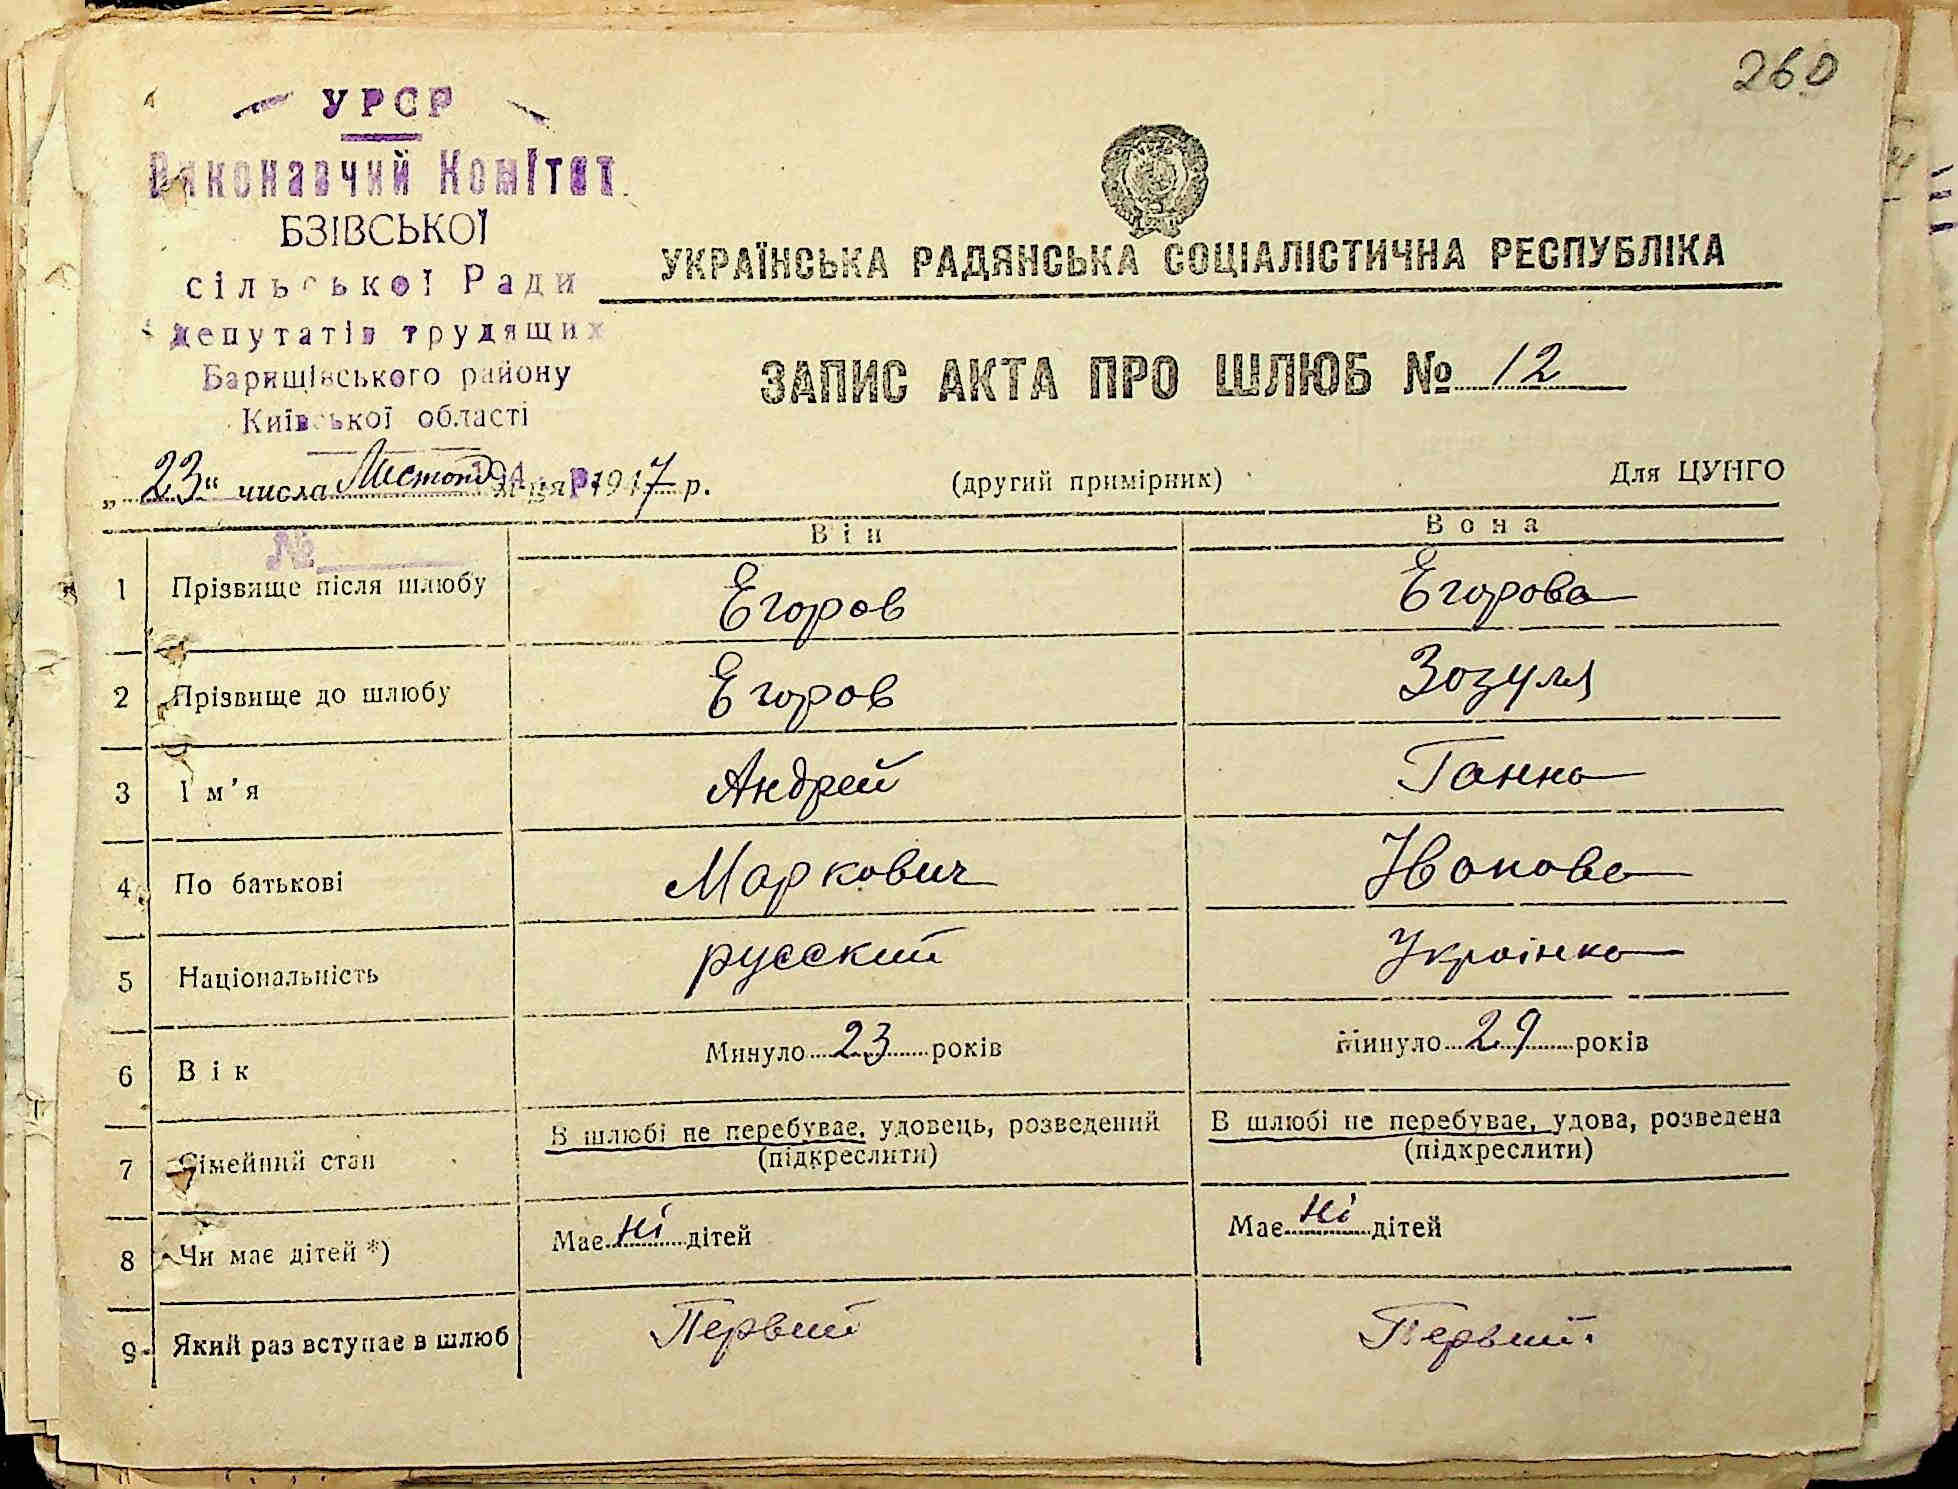 260
УРСР
Виконавчий Комітет
БЗІВСЬКОЇ
сільської Ради
депутатів трудящих
Баришівського району
Київської області
УКРАЇНСЬКА РАДЯНСЬКА СОЦІАЛІСТИЧНА РЕСПУБЛІКА
ЗАПИС АКТА ПРО ШЛЮБ № 12
„23“ числа Листопад м-ця 1947 р. (другий примірник) Для ЦУНГО
194 р.
№
Він Вона
1 Прізвище після шлюбу Егоров Егорова
2 Прізвище до шлюбу Егоров Зозуля
3 Ім'я Андрей Ганна
4 По батькові Маркович Іванова
5 Національність русский Українка
6 Вік Минуло 23 років Минуло 29 років
7 Сімейний стан В шлюбі не перебуває, удовець, розведений В шлюбі не перебуває, удова, розведена
(підкреслити) (підкреслити)
8 Чи має дітей *) Має ні дітей Має ні дітей
9 Який раз вступає в шлюб Первий Первий